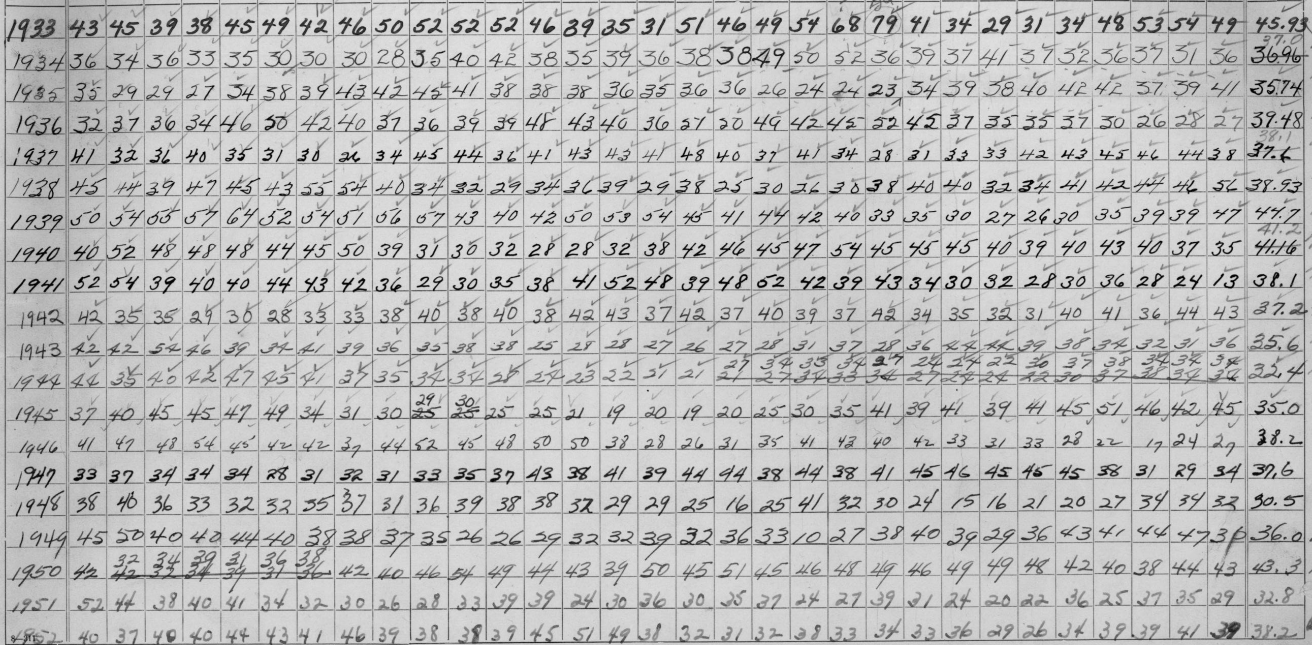 1933 43 45 39 38 45 49 42 46 50 52 52 52 46 39 35 31 51 46 49 54 68 79 41 34 29 31 34 48 53 54 49 45.93
37.0
1934 36 34 36 33 35 30 30 30 28 35 40 42 38 35 39 36 38 38 49 50 52 36 39 37 41 37 32 36 37 31 36 36.96
1935 35 29 29 27 34 38 39 43 42 45 41 38 38 38 36 35 36 36 26 24 24 23 34 39 38 40 42 42 37 39 41 35.74
1936 32 37 36 34 46 50 42 40 37 36 39 39 48 43 40 36 51 50 49 42 45 52 45 37 35 35 37 30 26 28 27 39.48
38.1
1937 41 32 36 40 35 31 30 26 34 45 44 36 41 43 43 41 48 40 37 41 34 28 31 33 33 42 43 45 46 44 38 37.6
1938 45 44 39 47 45 43 55 54 40 34 32 29 34 36 39 29 38 25 30 26 30 38 40 40 32 34 41 42 44 46 56 38.93
1939 50 54 55 57 64 52 54 51 56 57 43 40 42 50 53 54 45 41 44 42 40 33 35 30 27 26 30 35 39 39 47 44.7
41.2
1940 40 52 48 48 48 44 45 50 39 31 30 32 28 28 32 38 42 46 45 47 54 45 45 45 40 39 40 43 40 37 35 41.16
1941 52 54 39 40 40 44 43 42 36 29 30 35 38 41 52 48 39 48 52 42 39 43 34 30 32 28 30 36 28 24 13 38.1
1942 42 35 35 29 30 28 33 33 38 40 38 40 38 42 43 37 42 37 40 39 37 42 34 35 32 31 40 41 36 44 43 37.2
1943 42 42 54 46 39 34 41 39 36 35 38 38 25 28 28 27 26 27 28 31 37 28 36 44 44 39 38 34 32 31 36 35.6
27 34 33 34 27 24 24 22 30 37 38 34 34 34
1944 44 35 40 42 47 45 41 37 35 34 34 28 24 23 22 21 21 21 27 34 33 34 27 24 24 22 30 37 38 34 34 32.4
29 30
1945 37 40 45 45 47 49 34 31 30 25 25 25 25 21 19 20 19 20 25 30 35 41 39 41 39 41 45 51 46 42 45 35.0
1946 41 47 48 54 45 42 42 37 44 52 45 48 50 50 38 28 26 31 35 41 43 40 42 33 31 33 28 22 17 24 27 38.2
1947 33 37 34 34 34 28 31 32 31 33 35 37 43 38 41 39 44 44 38 44 38 41 45 46 45 45 45 38 31 29 34 37.6
1948 38 40 36 33 32 32 35 37 31 36 39 38 38 32 29 29 25 16 25 41 32 30 24 15 16 21 20 27 34 34 32 30.5
1949 45 50 40 40 44 40 38 38 37 35 26 26 29 32 32 39 32 36 33 10 27 38 40 39 29 36 43 41 44 47 30 36.0
32 34 39 31 36 38
1950 42 42 32 34 39 31 36 42 40 46 54 49 44 43 39 50 45 51 45 46 48 49 46 49 49 48 42 40 38 44 43 43.3
1951 52 44 38 40 41 34 32 30 26 28 33 39 39 24 30 36 30 35 37 24 27 39 31 24 20 22 36 25 37 35 29 32.8
40 37 40 40 44 43 41 46 39 38 38 39 45 51 49 38 32 31 32 38 33 34 33 36 29 26 34 39 39 41 39 38.2